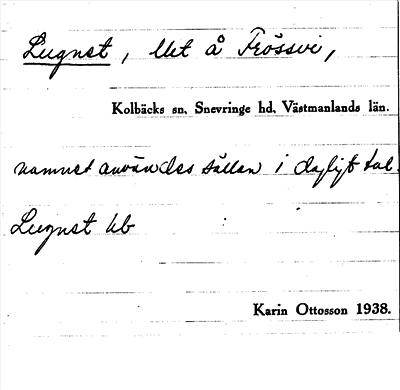 Lugnet, lht å Frössvi,
Kolbäcks sn, Snevringe hd, Västmanlands län.
namnet användes sällan i dagligt tal.
Lugnet hb
Karin Ottosson 1938.